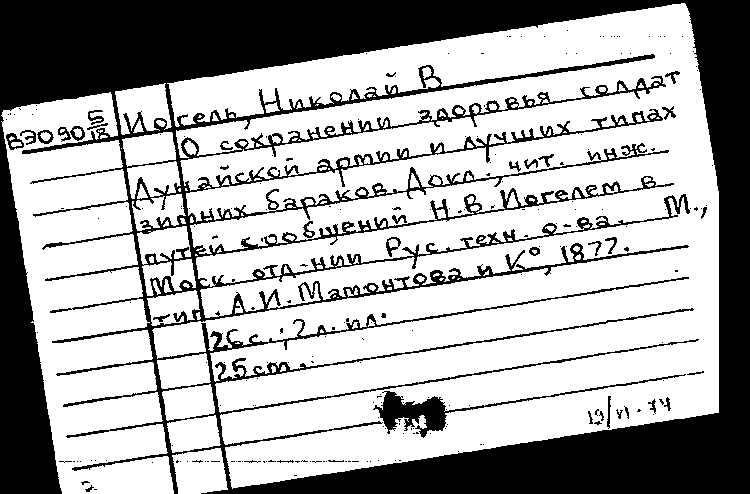 ВЭ090 5/18 Иогель, Николай В
О сохранении здоровья солдат
Дунайской армии и лучших типах
зимних бараков. Докл., чит. инж.
путей сообщений Н.В. Иогелем в
Моск. отд-нии Рус. техн. о-ва. М.,
тип. А.И. Мамонтова и К°, 1877.
26 с.; 2 л. ил.
25 cm.
19/VI-74
2